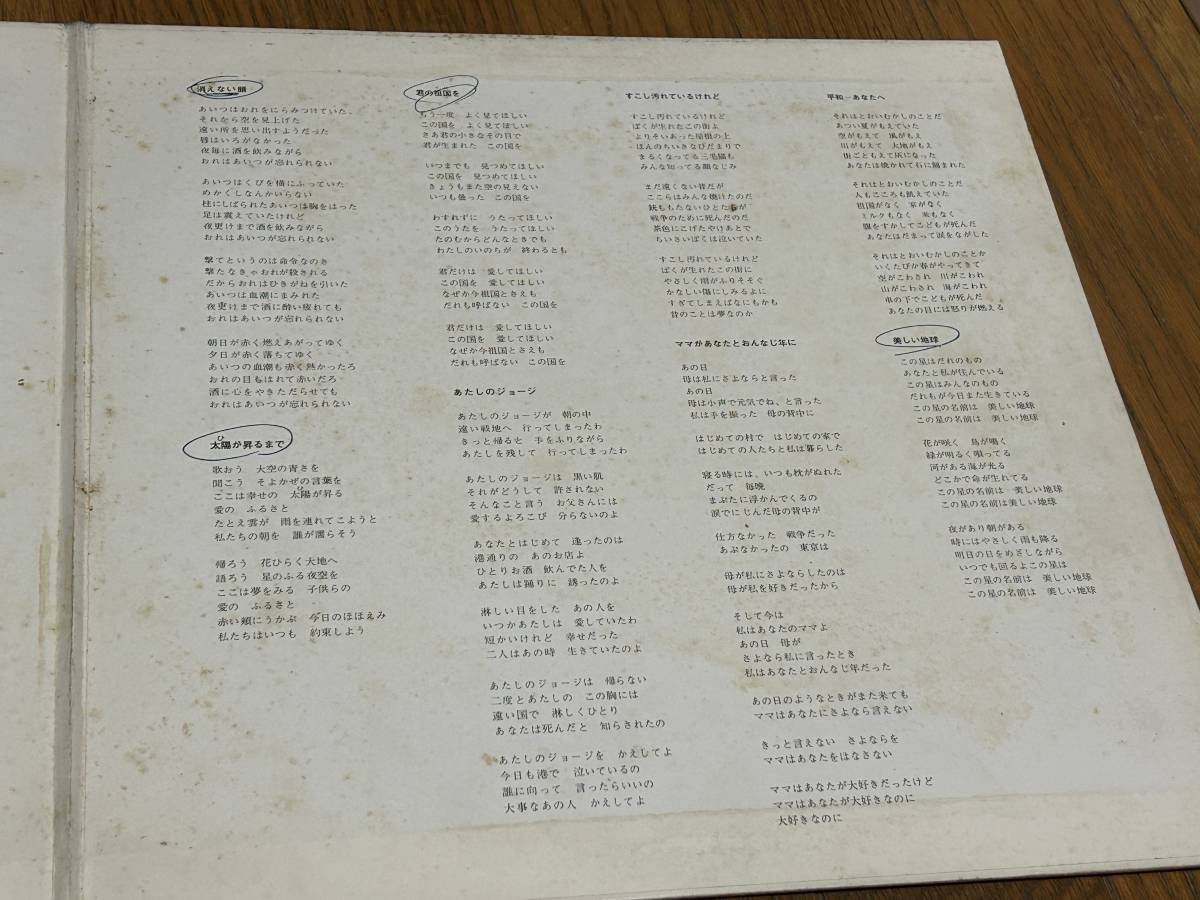 消えない顔
あいつはおれをにらみつけていた。
それから空を見上げた
遠い所を思い出すようだった
唇はいろがなかった
夜毎に酒を飲みながら
おれはあいつが忘れられない
あいつはくびを横にふっていた
めかくしなんかいらない
柱にしばられたあいつは胸をはった
足は震えていたけれど
夜更けまで酒を飲みながら
おれはあいつが忘れられない
撃てというのは命令なのさ
撃たなきゃおれが殺される
だからおれはひきがねを引いた
あいつは血潮にまみれた
夜更けまで酒に酔い疲れても
おれはあいつが忘れられない
朝日が赤く燃えあがってゆく
夕日が赤く落ちてゆく
あいつの血潮も赤く熱かったろ
おれの目もはれて赤いだろ
酒に心をやきただらせても
おれはあいつが忘れられない
ひ
太陽が昇るまで
歌おう 大空の青さを
聞こう そよかぜの言葉を
ひ
ここは幸せの 太陽が昇る
愛の ふるさと
たとえ雲が 雨を連れてこようと
私たちの朝を 誰が濡らそう
帰ろう 花ひらく大地へ
語ろう 星のふる夜空を
ここは夢をみる 子供らの
愛の ふるさと
赤い頬にうかぶ 今日のほほえみ
私たちはいつも 約束しよう
君の祖国を
もう一度 よく見てほしい
この国を よく見てほしい
さあ君の小さなその目で
君が生まれた この国を
いつまでも 見つめてほしい
この国を 見つめてほしい
きょうもまた空の見えない
いつも曇った この国を
わすれずに うたってほしい
このうたを うたってほしい
たのむからどんなときでも
わたしのいのちが 終わるとも
君だけは 愛してほしい
この国を 愛してほしい
なぜか今祖国とさえも
だれも呼ばない この国を
君だけは 愛してほしい
この国を 愛してほしい
なぜか今祖国とさえも
だれも呼ばない この国を
あたしのジョージ
あたしのジョージが 朝の中
遠い戦地へ 行ってしまったわ
きっと帰ると 手をふりながら
あたしを残して 行ってしまったわ
あたしのジョージは 黒い肌
それがどうして 許されない
そんなこと言う お父さんには
愛するよろこび 分らないのよ
あなたとはじめて 逢ったのは
港通りの あのお店よ
ひとりお酒 飲んでた人を
あたしは踊りに 誘ったのよ
淋しい目をした あの人を
いつかあたしは 愛していたわ
短かいけれど 幸せだった
二人はあの時 生きていたのよ
あたしのジョージは 帰らない
二度とあたしの この胸には
遠い国で 淋しくひとり
あなたは死んだと 知らされたの
あたしのジョージを かえしてよ
今日も港で 泣いているの
誰に向って 言ったらいいの
大事なあの人 かえしてよ
すこし汚れているけれど
すこし汚れているけれど
ぼくが生れたこの街よ
よりそいあった屋根の上
ほんのちいさなひだまりで
まるくなってる三毛猫も
みんな知ってる顔なじみ
まだ遠くない昔だが
ここらはみんな焼けたのだ
銃ももたないひとたちが
戦争のために死んだのだ
茶色にこげたやけあとで
ちいさいぼくは泣いていた
すこし汚れているけれど
ぼくが生れたこの街に
やさしく雨がふりそそぐ
かなしい傷にしみるよに
すぎてしまえばなにもかも
昔のことは夢なのか
ママがあなたとおんなじ年に
あの日
母は私にさよならと言った
あの日
母は小声で元気でね、と言った
私は手を振った 母の背中に
はじめての村で はじめての家で
はじめての人たちと私は暮らした
寝る時には、いつも枕がぬれた
だって 毎晩
まぶたに浮かんでくるの
涙でにじんだ母の背中が
仕方なかった 戦争だった
あぶなかったの 東京は
母が私にさよならしたのは
母が私を好きだったから
そして今は
私はあなたのママよ
あの日 母が
さよなら私に言ったとき
私はあなたとおんなじ年だった
あの日のようなときがまた来ても
ママはあなたにさよなら言えない
きっと言えない さよならを
ママはあなたをはなさない
ママはあなたが大好きだったけど
ママはあなたが大好きなのに
大好きなのに
平和－あなたへ
それはとおいむかしのことだ
あつい夏がもえていた
空がもえて 風がもえ
川がもえて 大地がもえ
街ごともえて灰になった
あなたは焼かれて石に刻まれた
それはとおいむかしのことだ
人もこころも飢えていた
祖国がなく 家がなく
ミルクもなく 米もなく
腹をすかしてこどもが死んだ
あなたはだまって涙をながした
それはとおいむかしのことか
いくたびか春がやってきて
空がこわされ 川がこわれ
山がこわされ 海がこわれ
車の下でこどもが死んだ
あなたの目には怒りが燃える
美しい地球
この星はだれのもの
あなたと私が住んでいる
この星はみんなのもの
だれもが今日また生きている
この星の名前は 美しい地球
この星の名前は 美しい地球
花が咲く 鳥が鳴く
緑が明るく唄ってる
河がある海が光る
どこかで命が生れてる
この星の名前は 美しい地球
この星の名前は美しい地球
夜があり朝がある
時にはやさしく雨も降る
明日の日をめざしながら
いつでも回るよこの星は
この星の名前は 美しい地球
この星の名前は 美しい地球